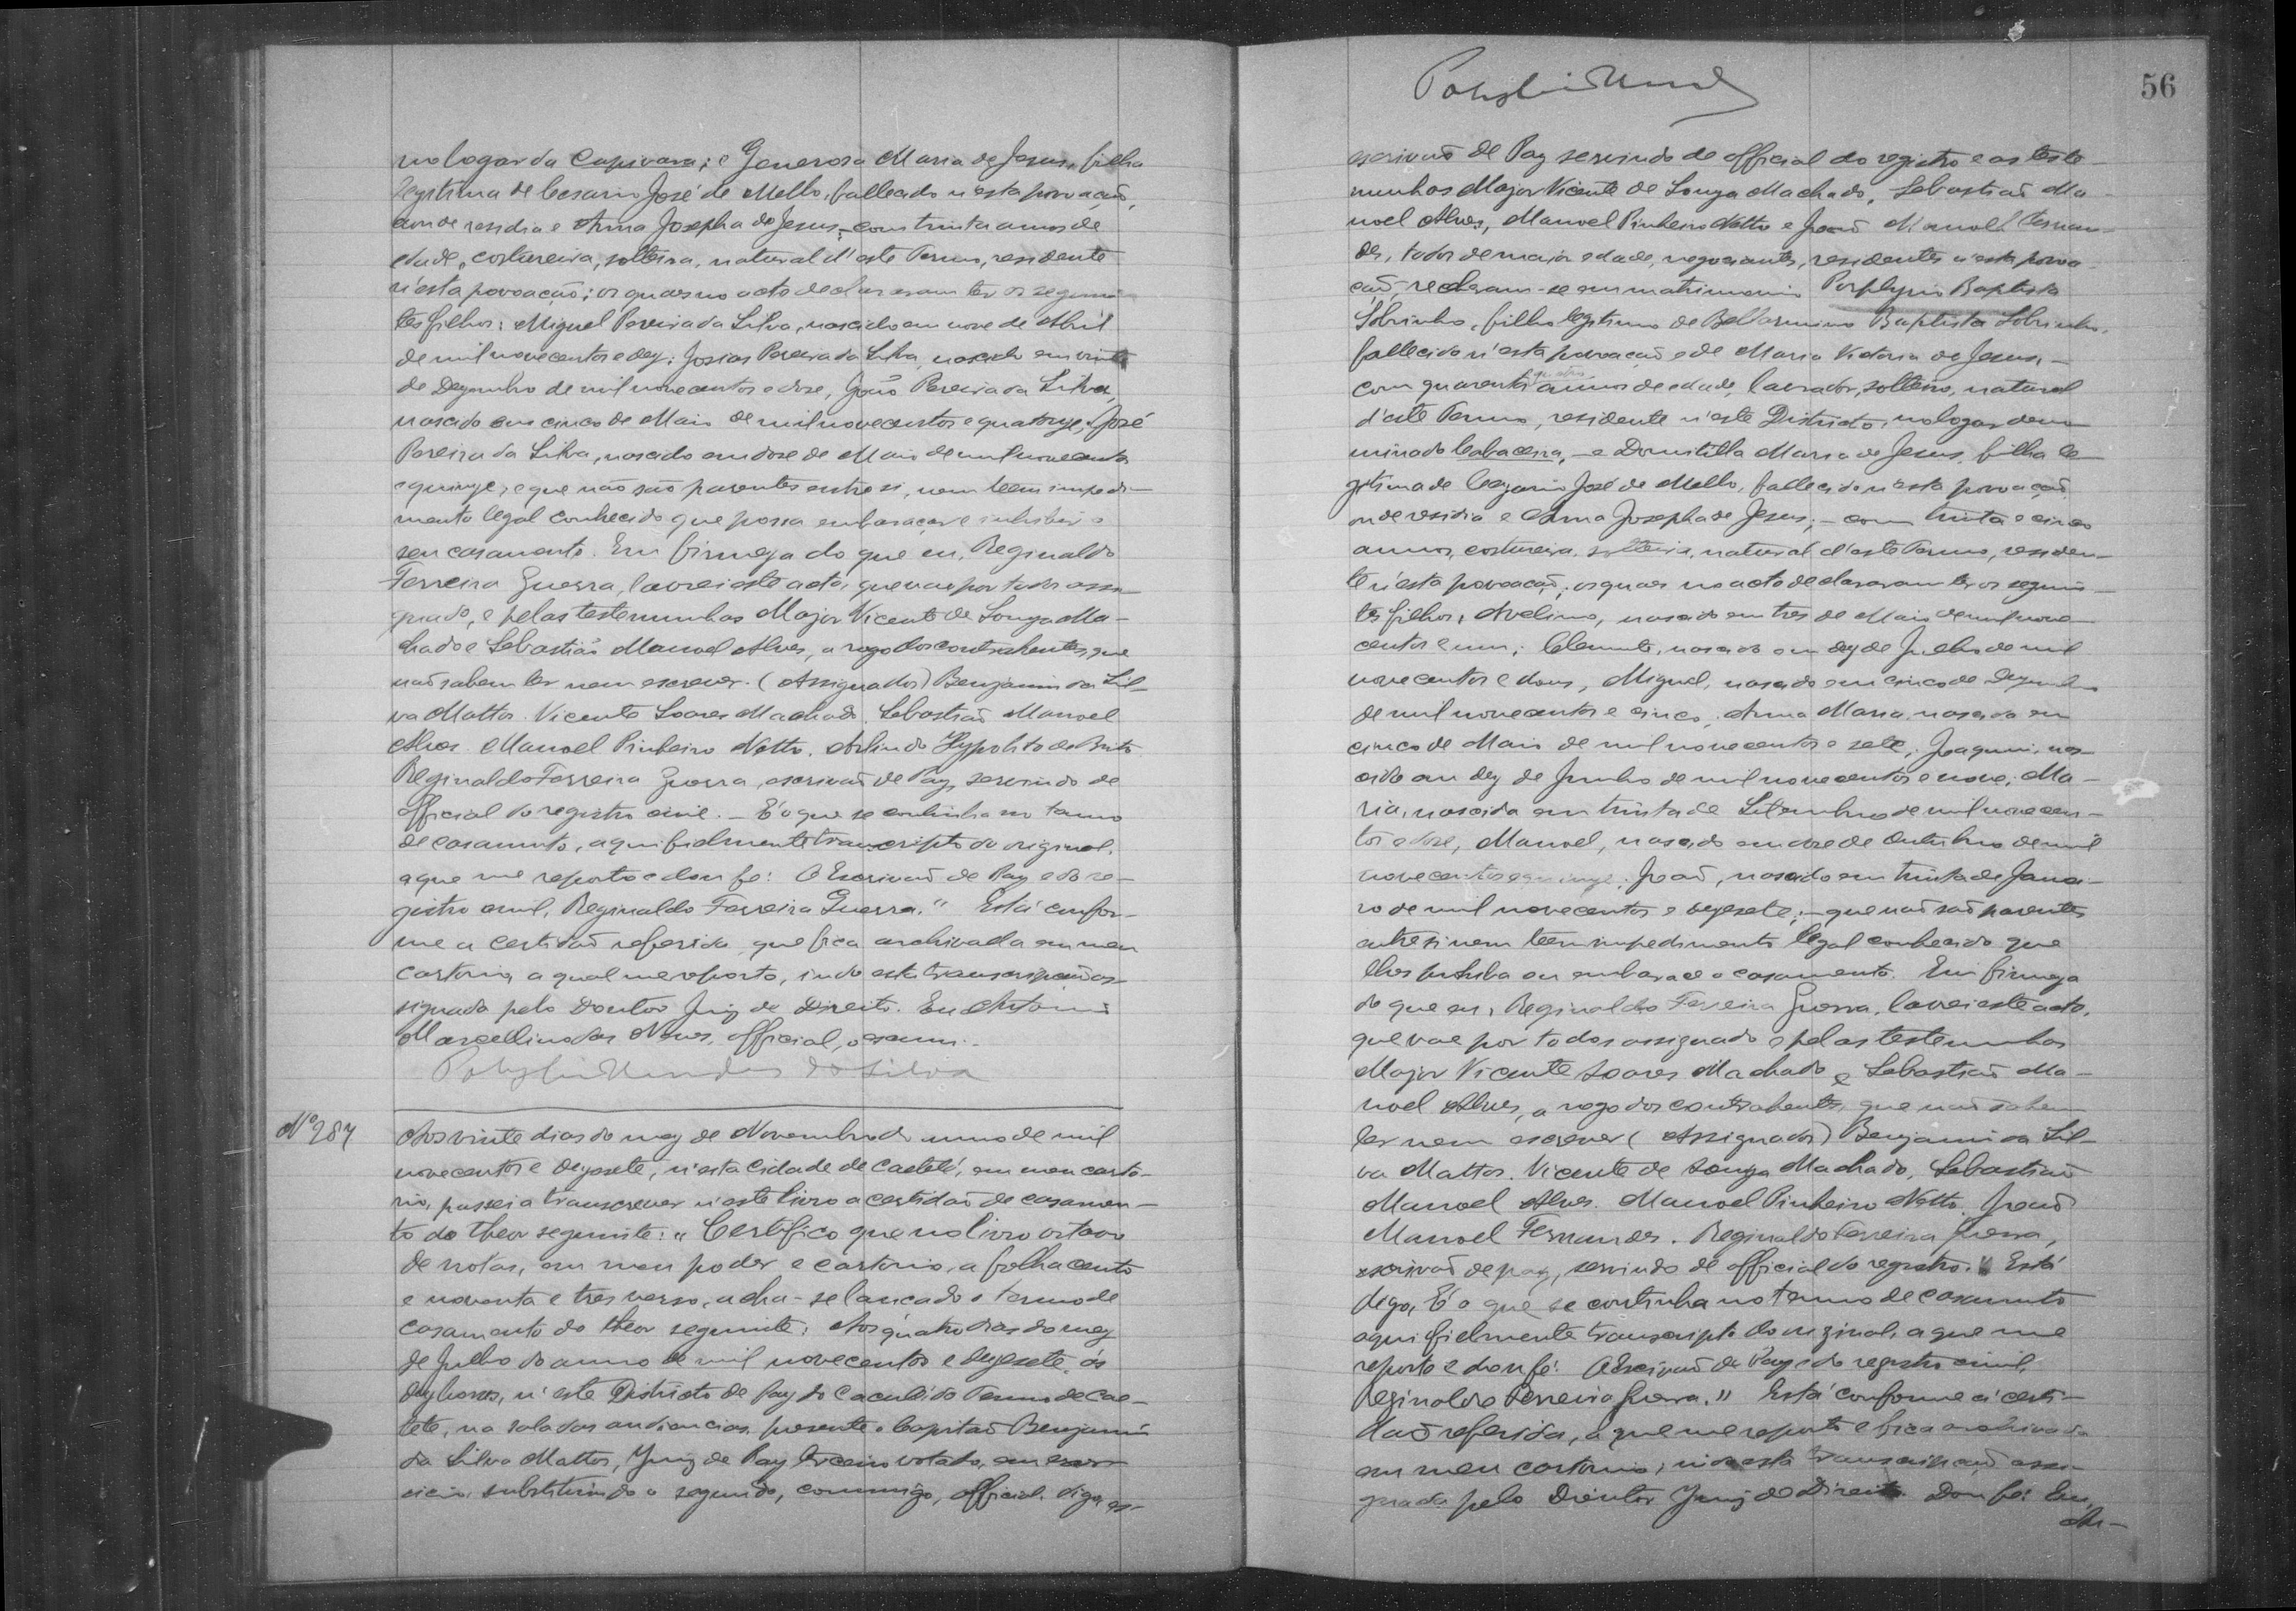 no logar da Capivara; e Generosa Maria de Jesus, filha
legitima de Cesario José de Mello, fallecido n'esta povoação,
aonde residia e Anna Josepha de Jesus; com trinta annos de
edade, costureira, solteira, natural d'este Termo, residente
n'esta povoação; os quaes no acto declararam ter os seguin-
tes filhos: Miguel Pereira da Silva, nascido em nove de Abril
de mil novecentos e dez; Josias Pereira da Silva, nascido em vinte
de Dezembro de mil novecentos e doze, João Pereira da Silva,
nascido em cinco de Maio de mil novecentos e quatorze, José
Pereira da Silva, nascido em doze de Maio de mil novecentos
e quinze; e que não são parentes entre si, nem teem impedi-
mento legal conhecido que possa embaraçar e inhibir o
seu casamento. Em firmeza do que eu, Reginaldo
Ferreira Guerra, lavrei este acto, que vae por todos assi-
gnado, e pelas testemunhas Major Vicente de Souza Ma-
chado e Sebastião Manoel Alves, a rogo dos contrahentes, que
não sabem ler nem escrever. (Assignados) Benjamin da Sil-
va Mattos. Vicente Soares Machado. Sebastião Manoel
Alves. Manoel Pinheiro Notto. Arlindo Hypolito de Brito
Reginaldo Ferreira Guerra, escrivão de Paz, servindo de
official do registro civil. — É o que se continha no termo
de casamento, aqui fielmente transcripto do original,
a que me reporto e dou fé: O Escrivão de Paz e do re-
gistro civil, Reginaldo Ferreira Guerra." Está confor-
me a certidão referida, que fica archivada em meu
cartorio, a qual me reporto, indo esta transcripção as-
signada pelo Doutor Juiz de Direito. Eu Antonio
Marcellino das Neves, official, o escrevi.
Mendes da Silva
Nº 284
Aos vinte dias do mez de Novembro do anno de mil
novecentos e dezesete, n'esta Cidade de Caeteté, em meu carto-
rio, passei a transcrever n'este livro a certidão de casamen-
to do theor seguinte: "Certifico que no livro oitavo
de notas, em meu poder e cartorio, a folha cento
e noventa e tres verso, acha-se lançado o termo de
casamento do theor seguinte: Aos quatro dias do mez
de Julho do anno de mil novecentos e dezesete, ás
dez horas, n'este Districto de Paz do Caculé, do Termo de Cae-
teté, na sala das audiencias, presente o Capitão Benjamin
da Silva Mattos, Juiz de Paz terceiro votado, em exer-
cicio, substituindo o segundo, commigo, official, digo, es-
56
escrivão de Paz servindo de official do registro e as teste-
munhas Major Vicente de Souza Machado, Sebastião Ma-
noel Alves, Manoel Pinheiro Notto e João Manoel Fernan-
des, todos de maior edade, negociantes, residentes n'esta povoa-
ção, receberam-se em matrimonio Porphyrio Baptista
Sobrinho, filho legitimo de Bellarmino Baptista Sobrinho,
fallecido n'esta povoação e de Maria Victoria de Jesus, —
com quarenta e quatro annos de edade, lavrador, solteiro, natural
d'este Termo, residente n'este Districto, no logar deno-
minado Cabaceira, — e Domitilla Maria de Jesus, filha le-
gitima de Cezario José de Mello, fallecido n'esta povoação
onde residia e Anna Josepha de Jesus; — com trinta e cinco
annos, costureira, solteira, natural d'este Termo, residen-
te n'esta povoação; os quaes no acto declararam ter os seguin-
tes filhos: Avelino, nascido em tres de Maio de mil nove-
centos e um; Clemente, nascido em dez de Julho de mil
novecentos e dous, Miguel, nascido em cinco de Dezembro
de mil novecentos e cinco; Anna Maria, nascida em
cinco de Maio de mil novecentos e sete; Joaquim, nas-
cido em dez de Junho de mil novecentos e nove; Ma-
ria, nascida em trinta de Setembro de mil novecen-
tos e doze, Manoel, nascido em doze de Outubro de mil
novecentos e quinze; João, nascido em trinta de Janei-
ro de mil novecentos e dezesete; — que não são parentes
entre si nem teem impedimento legal conhecido que
lhes inhiba ou embarace o casamento. Em firmeza
do que eu, Reginaldo Ferreira Guerra, lavrei este acto,
que vae por todos assignado e pelas testemunhas
Major Vicente Soares Machado e Sebastião Ma-
noel Alves, a rogo dos contrahentes, que não sabem
ler nem escrever (Assignados) Benjamin da Sil-
va Mattos. Vicente de Souza Machado, Sebastião
Manoel Alves. Manoel Pinheiro Notto. João
Manoel Fernandes. Reginaldo Ferreira Guerra,
escrivão de paz, servindo de official do registro." Está
digo, É o que se continha no termo de casamento
aqui fielmente transcripto do original, a que me
reporto e dou fé. O Escrivão de Paz e do registro civil,
Reginaldo Ferreira Guerra." Está conforme a certi-
dão referida, a que me reporto e fica archivada
em meu cartorio; indo esta transcripção assi-
gnada pelo Doutor Juiz de Direito. Dou fé: Eu,
An-